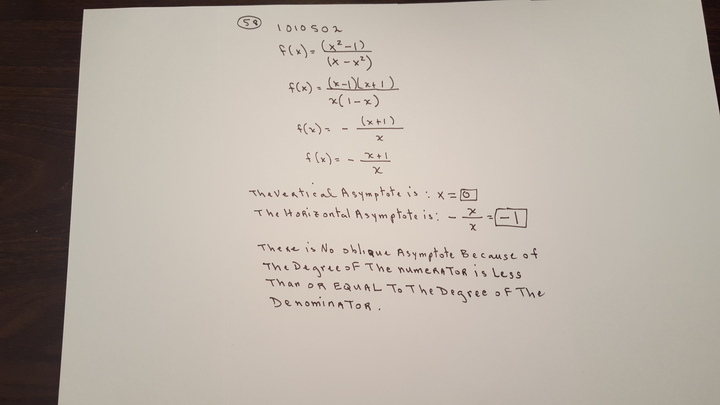 58 1010502
f(x) = (x²-1)/(x-x²)
f(x) = (x-1)(x+1)/x(1-x)
f(x) = - (x+1)/x
f(x) = - x+1/x
The Vertical Asymptote is : x = 0
The Horizontal Asymptote is : - x/x = -1
There is No oblique Asymptote Because of
The Degree of The numerator is Less
Than or EQUAL To The Degree of The
Denominator.